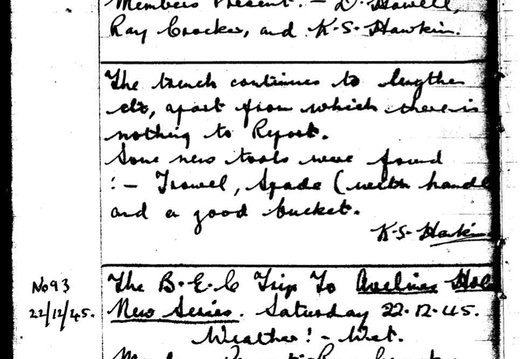 Members Present. - D. Howell
Ray Crocker, and K.S. Hawkin.
The trench continues to lengthen
etc, apart from which there is
nothing to Report.
Some new tools were found
:- Trowel, Spade (with handle
and a good bucket.
K.S. Hawkin
No 93
The B.E.C Trip To Avelines Hole
22/12/45.
New Series. Saturday 22.12.45.
Weather! - Wet.